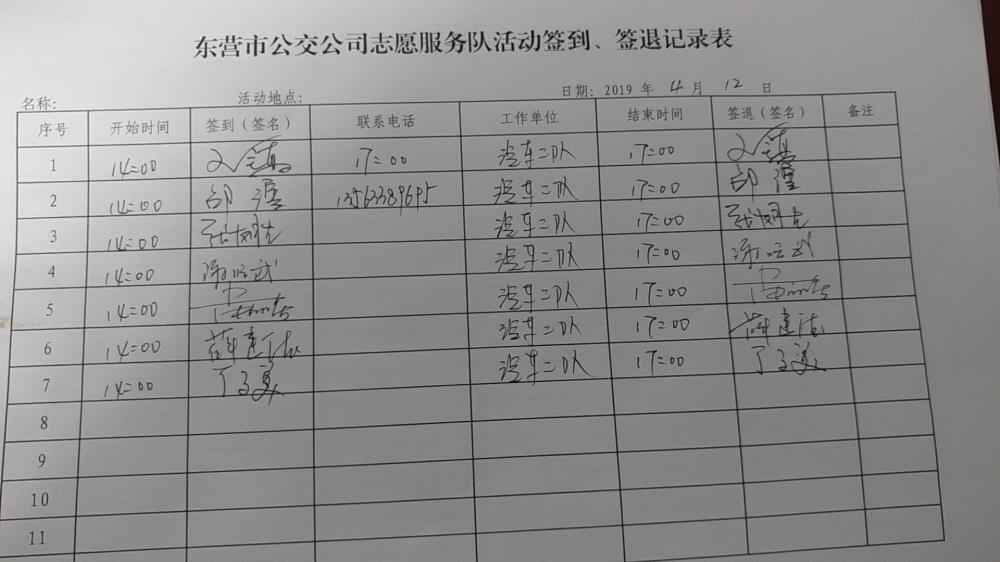 东营市公交公司志愿服务队活动签到、签退记录表
名称: 活动地点: 日期: 2019 年 4 月 12 日
序号 开始时间 签到（签名） 联系电话 工作单位 结束时间 签退（签名） 备注
1 14=00 17=00 汽车二队 17=00
2 14=00 邵强 13563389695 汽车二队 17=00 邵强
3 14=00 汽车二队 17=00
4 14=00 汽车二队 17=00
5 14=00 汽车二队 17=00
6 14=00 薛建 汽车二队 17=00 薛建
7 14=00 汽车二队 17=00
8
9
10
11